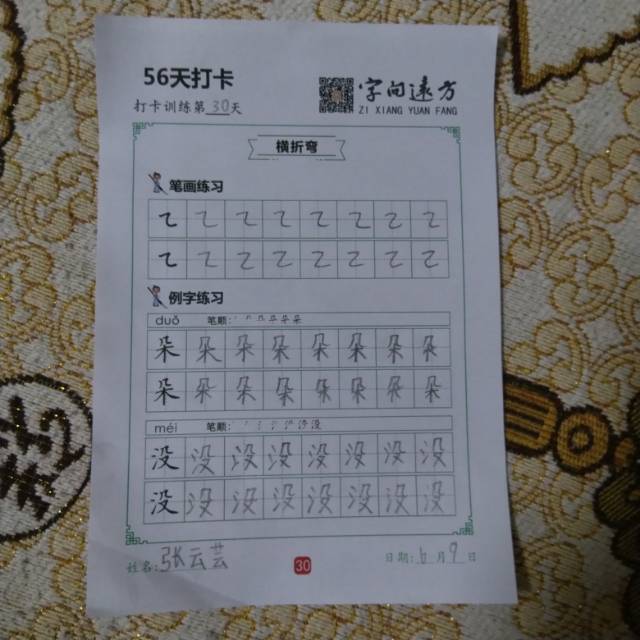 56天打卡
打卡训练第30天
字向远方
ZI XIANG YUAN FANG
横折弯
笔画练习
例字练习
duǒ 笔顺:
朵 朵 朵 朵 朵 朵 朵 朵
朵 朵 朵 朵 朵 朵 朵 朵
méi 笔顺:
没 没 没 没 没 没 没 没
没 没 没 没 没 没 没 没
姓名:张云芸
30
日期:6月9日